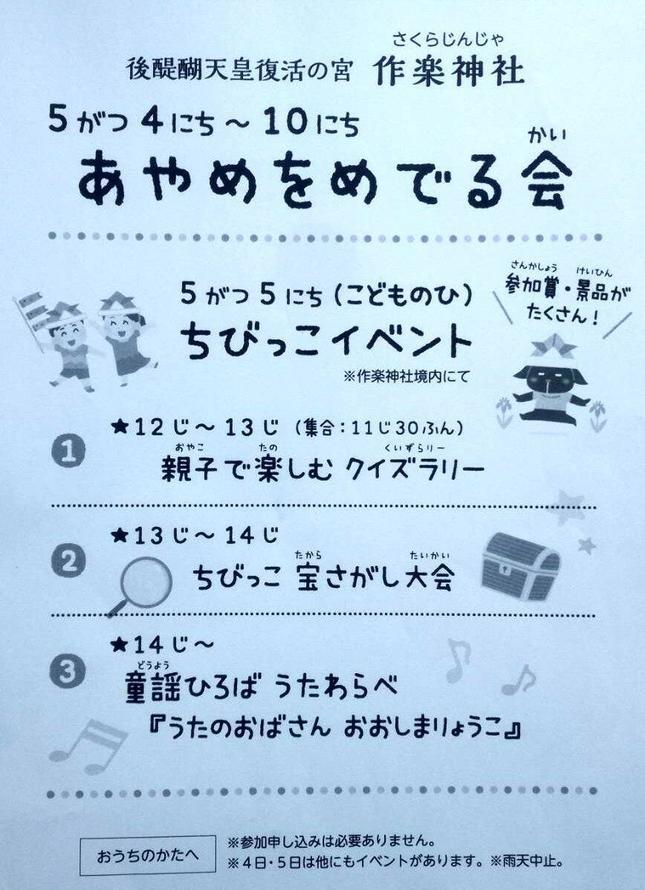 さくらじんじゃ
後醍醐天皇復活の宮 作楽神社
5がつ4にち～10にち
かい
あやめをめでる会
5がつ5にち(こどものひ)
ちびっこイベント
※作楽神社境内にて
さんかしょう けいひん
参加賞・景品が
たくさん!
1
★12じ～13じ (集合:11じ30ふん)
おやこ たの くいずらりー
親子で楽しむ クイズラリー
2
★13じ～14じ
たから たいかい
ちびっこ 宝さがし大会
3
★14じ～
どうよう
童謡ひろば うたわらべ
『うたのおばさん おおしまりょうこ』
おうちのかたへ
※参加申し込みは必要ありません。
※4日・5日は他にもイベントがあります。※雨天中止。